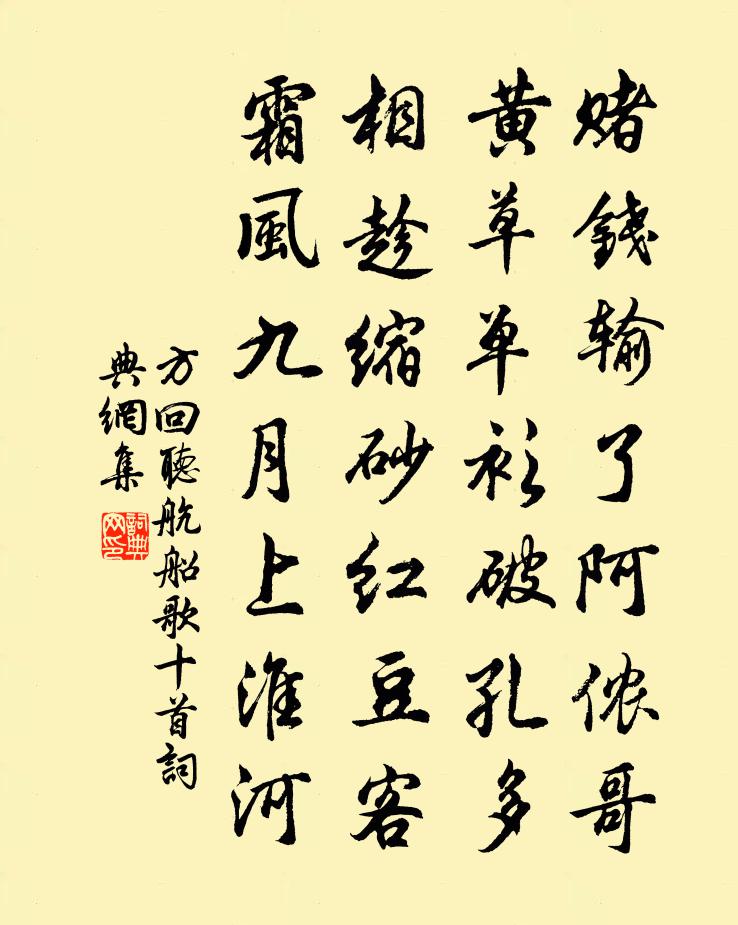 赌錢输了阿侬哥
黄草单衫破孔多
相趁缩砂红豆客
霜風九月上淮河
方回聽航船歌十首詞
典網集
詞典
网印